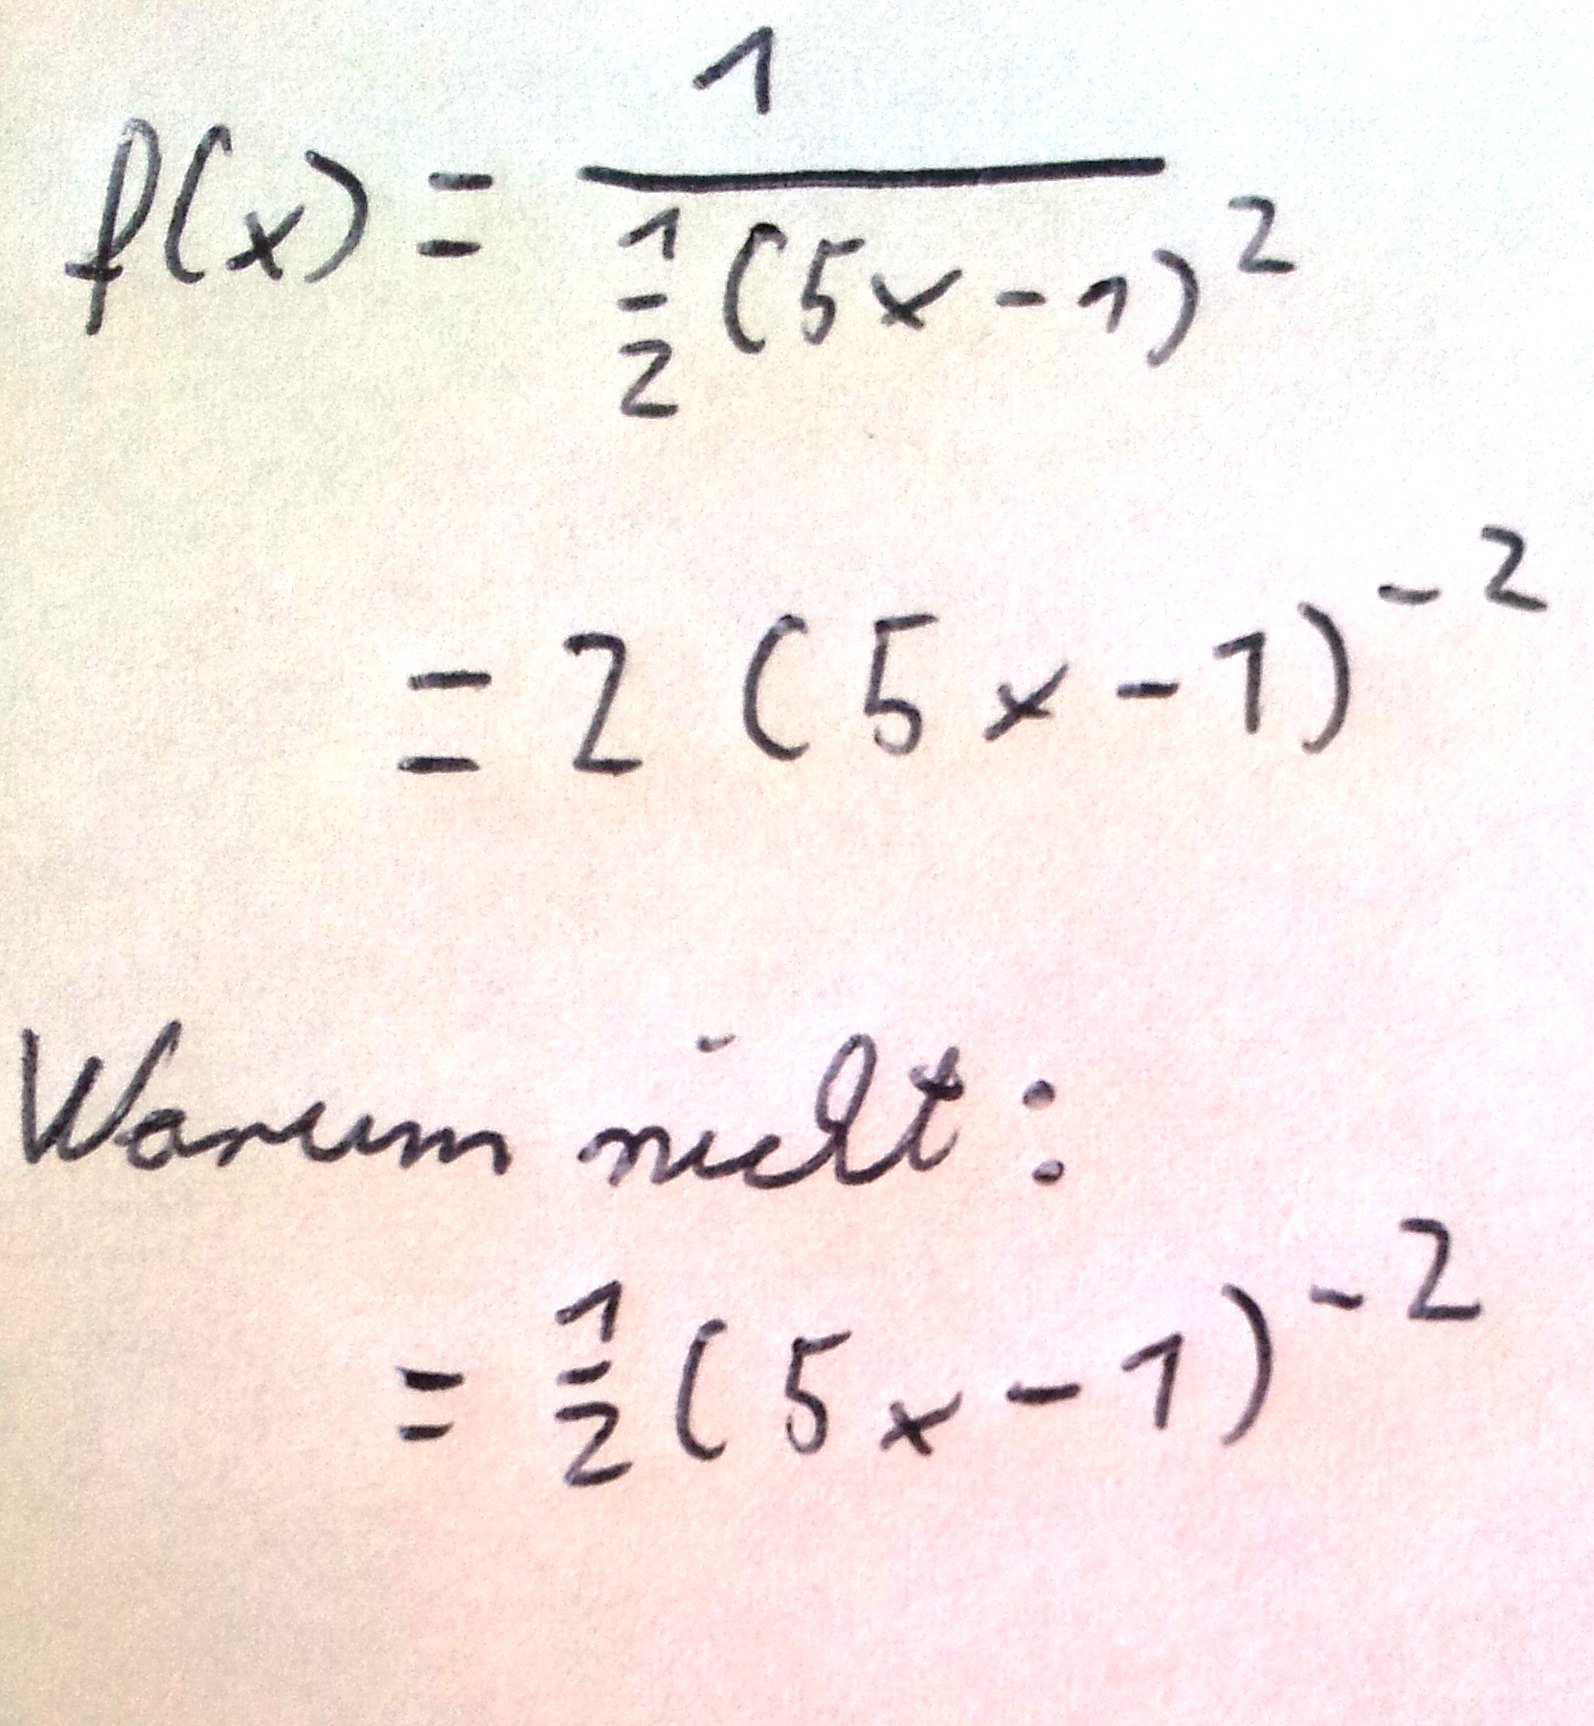 f(x) = 1 / ½ (5x - 1)²
= 2 (5x - 1)⁻²
Warum nicht:
= ½ (5x - 1)⁻²